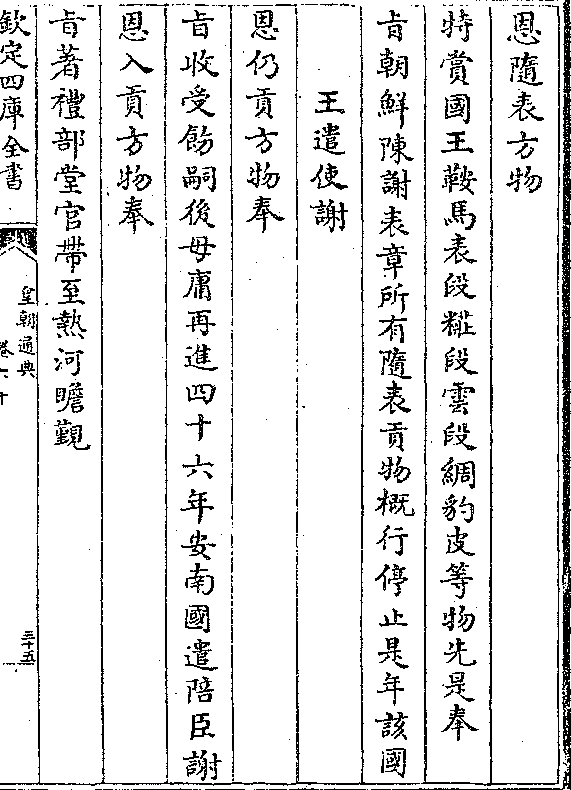 恩隨表方物
特賞國王鞍馬表段糚段雲段綢豹皮等物先是奉
旨朝鮮陳謝表章所有隨表貢物概行停止是年該國
王遣使謝
恩仍貢方物奉
旨收受飭嗣後毋庸再進四十六年安南國遣陪臣謝
恩入貢方物奉
旨著禮部堂官帶至熱河瞻覲
欽定四庫全書
皇朝通典
卷六十
三十五